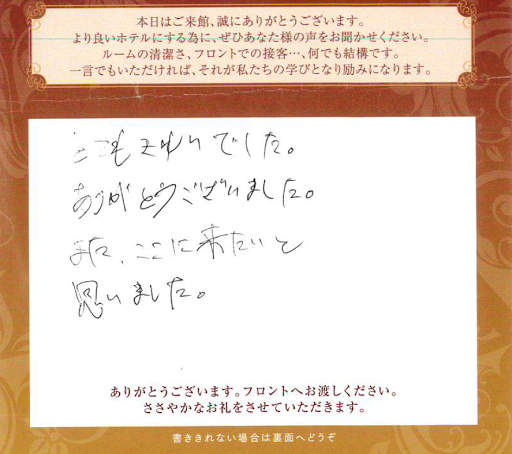 本日はご来館、誠にありがとうございます。
より良いホテルにする為に、ぜひあなた様の声をお聞かせください。
ルームの清潔さ、フロントでの接客…、何でも結構です。
一言でもいただければ、それが私たちの学びとなり励みになります。
とてもきれいでした。
ありがとうございました。
また、ここに来たいと
思いました。
ありがとうございます。フロントへお渡しください。
ささやかなお礼をさせていただきます。
書ききれない場合は裏面へどうぞ